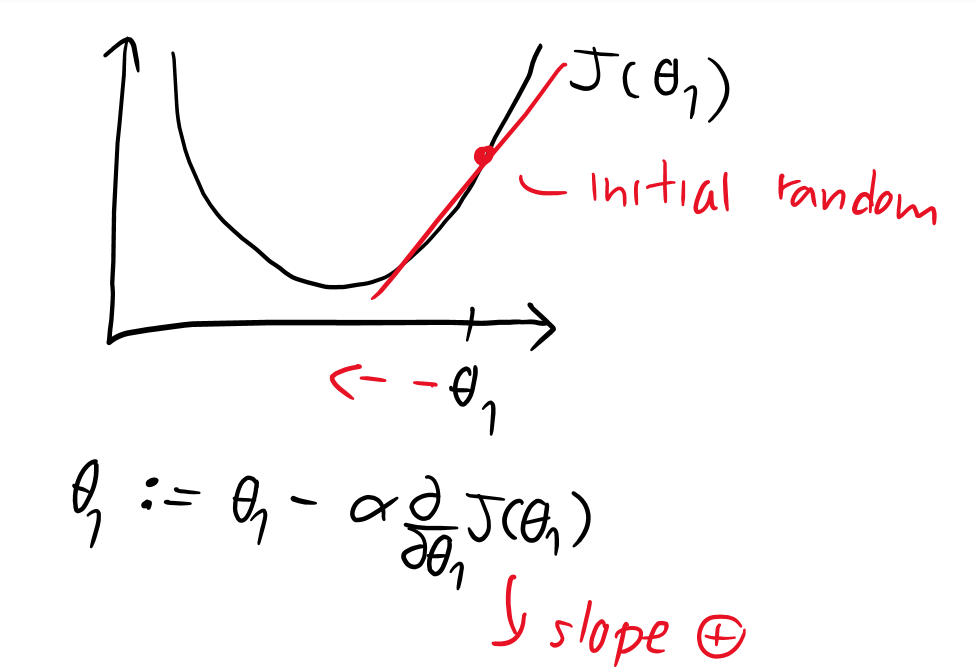 J(θ₁)
initial random
θ₁
θ₁ := θ₁ - α ∂/∂θ₁ J(θ₁)
slope ⊕